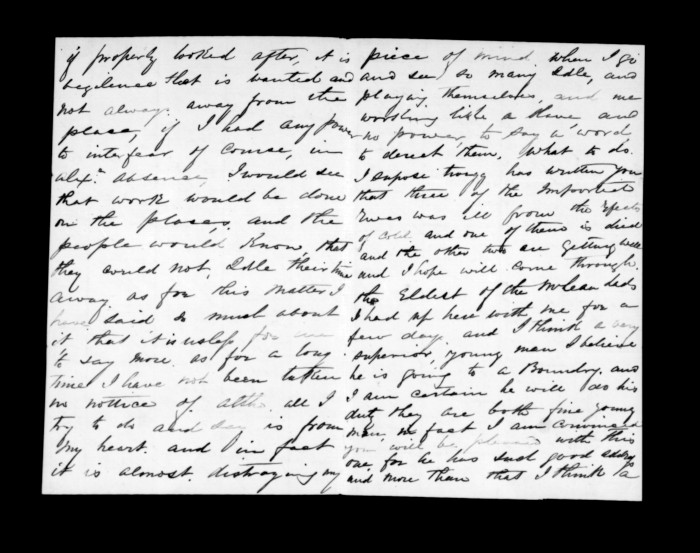 if properly looked after, it is
vegilence that is wanted and
not always away from the
place, if I had any power
to interfear of course, in
Alexr absence, I would see
that work would be done
on the place, and the
people would know, that
they could not, Idle their time
away. as for this matter I
have said so much about
it that it is usless for me
to say more. as for a long
time I have not been taken
no nottice of altho all I
try to do and say is from
my heart. and in fact
it is almost. distroying my
piece of mind. when I go
and see so many Idle, and
playing themselves, and me
working like a Slave and
no power, to say a word
to derect them, what to do.
I supose has written you
that three of the Imported
Ewes was ill from the efects
of cold and one of them is died
and the other two are getting well
and I hope will come through.
the Eldest of the McLean lads
I had up here with me for a
few days. and I think a very
superior, young man I believe
he is going to a Boundry. and
I am certain he will do his
duty they are both fine young
men, in fact I am convinced
you will be pleased with this
one, for he has such good
and more than that I think a